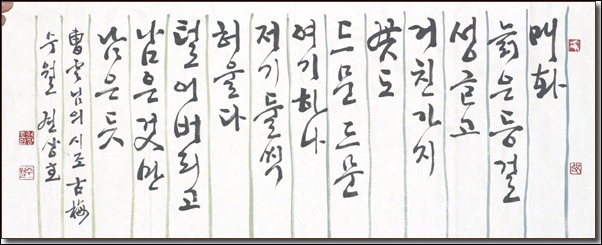 매화
늙은 등걸
성글고
거친 가지
꽃도
드문드문
여기 하나
저기 둘씩
허울 다
털어버리고
남은 것만
남은 듯
曺雲님의 시조 古梅
수월 권상호